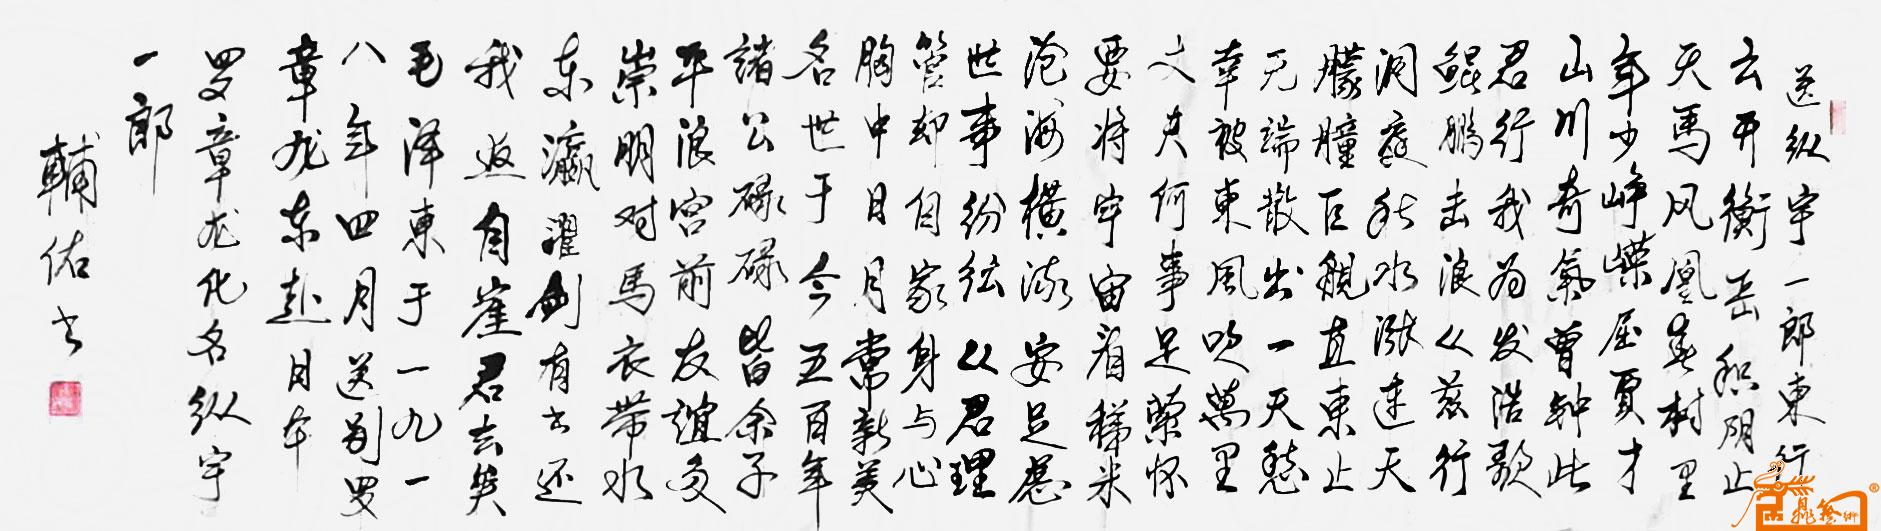 送纵宇一郎東行
云开衡岳积阴止
天馬凤凰春树里
年少峥嵘屈贾才
山川奇氣曾钟此
君行我为发浩歌
鲲鹏击浪从兹行
洞庭秋水涨连天
朦朣巨舰直東止
无端散出一天愁
幸被東風吹萬里
丈夫何事足萦怀
要将宇宙看稊米
沧海横流安足虑
世事纷纭从君理
管却自家身与心
胸中日月常新美
名世于今五百年
諸公碌碌皆余子
平浪宫前友誼多
崇明对馬衣带水
东瀛濯剑有书还
我返自崖君去矣
毛泽東于一九一
八年四月送别罗
章龙东赴日本
罗章龙化名纵宇
一郎
輔佑书